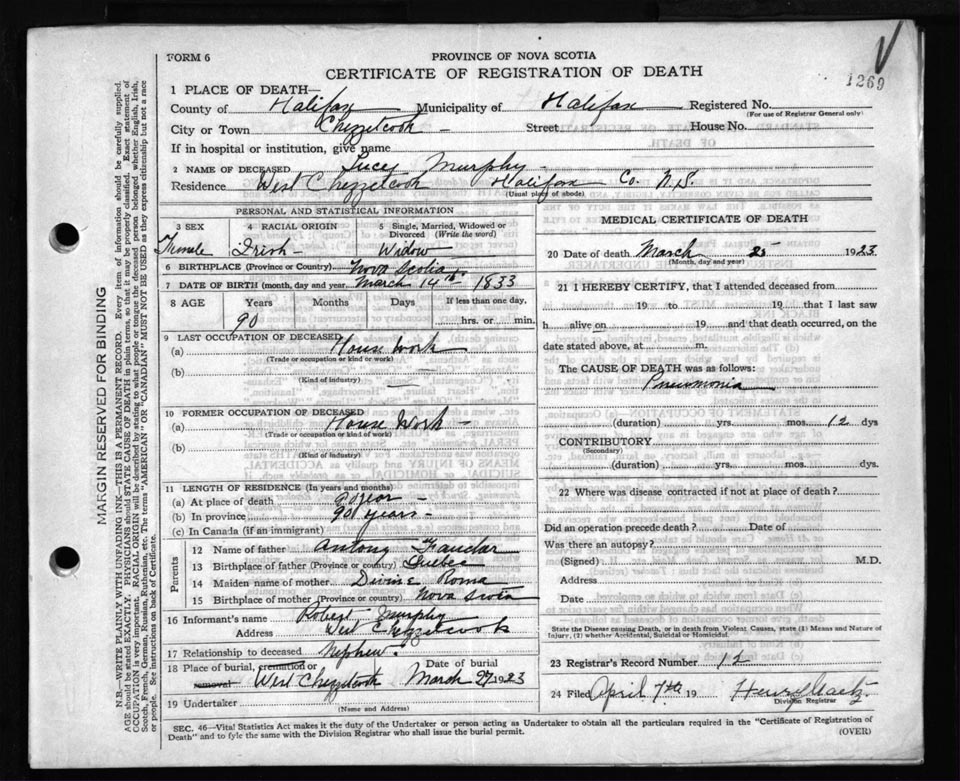 FORM 6
PROVINCE OF NOVA SCOTIA
CERTIFICATE OF REGISTRATION OF DEATH
1269
1 PLACE OF DEATH—
County of Halifax Municipality of Halifax Registered No.
(For use of Registrar General only)
City or Town Chezzetcook Street House No.
If in hospital or institution, give name
2 NAME OF DECEASED Lucy Murphy
Residence West Chezzetcook Halifax Co. N.S.
(Usual place of abode)
PERSONAL AND STATISTICAL INFORMATION
3 SEX 4 RACIAL ORIGIN 5 Single, Married, Widowed or Divorced (Write the word)
Irish Widow
6 BIRTHPLACE (Province or Country) Nova Scotia
7 DATE OF BIRTH (month, day and year) March 14th 1833
8 AGE Years Months Days If less than one day,
90 hrs. or min.
9 LAST OCCUPATION OF DECEASED
(a) House Work
(Trade or occupation or kind or work)
(b)
(Kind of industry)
10 FORMER OCCUPATION OF DECEASED
(a) House Work
(Trade or occupation or kind of work)
(b)
(Kind of industry)
11 LENGTH OF RESIDENCE (In years and months)
(a) At place of death
(b) In province 90 years
(c) In Canada (if an immigrant)
Parents
12 Name of father Antony
13 Birthplace of father (Province or country) Quebec
14 Maiden name of mother Roma
15 Birthplace of mother (Province or country) Nova Scotia
16 Informant's name Robert Murphy
Address West Chezzetcook
17 Relationship to deceased Nephew
18 Place of burial, cremation or removal West Chezzetcook Date of burial March 27 1923
19 Undertaker
(Name and Address)
MEDICAL CERTIFICATE OF DEATH
20 Date of death March 25 1923
(Month, day and year)
21 I HEREBY CERTIFY, that I attended deceased from
19 to 19 that I last saw
h alive on 19 and that death occurred, on the
date stated above, at m.
The CAUSE OF DEATH was as follows:
Pneumonia
(duration) yrs. mos. 12 dys
CONTRIBUTORY
(Secondary)
(duration) yrs. mos. dys.
22 Where was disease contracted if not at place of death?
Did an operation precede death? Date of
Was there an autopsy?
(Signed) M.D.
Address
Date
State the Disease causing Death, or in death from Violent Causes, state (1) Means and Nature of Injury, (2) whether Accidental, Suicidal or Homicidal.
23 Registrar's Record Number 12
24 Filed April 7th 19
Division Registrar
SEC. 46—Vital Statistics Act makes it the duty of the Undertaker or person acting as Undertaker to obtain all the particulars required in the "Certificate of Registration of
Death" and to fyle the same with the Division Registrar who shall issue the burial permit.
(OVER)
MARGIN RESERVED FOR BINDING
N.B.—WRITE PLAINLY WITH UNFADING INK—THIS IS A PERMANENT RECORD. Every item of information should be carefully supplied.
AGE should be stated EXACTLY. PHYSICIANS should STATE CAUSE OF DEATH in plain terms, so that it may be properly classified. Exact statement of
OCCUPATION is very important. RACIAL ORIGIN will be described by stating to what people or tongue the deceased person belonged whether English, Irish,
Scotch, French, German, Russian, Ruthenian, etc. The terms "AMERICAN" or "CANADIAN" MUST NOT BE USED as they express citizenship but not a race
or people. See instructions on back of Certificate.